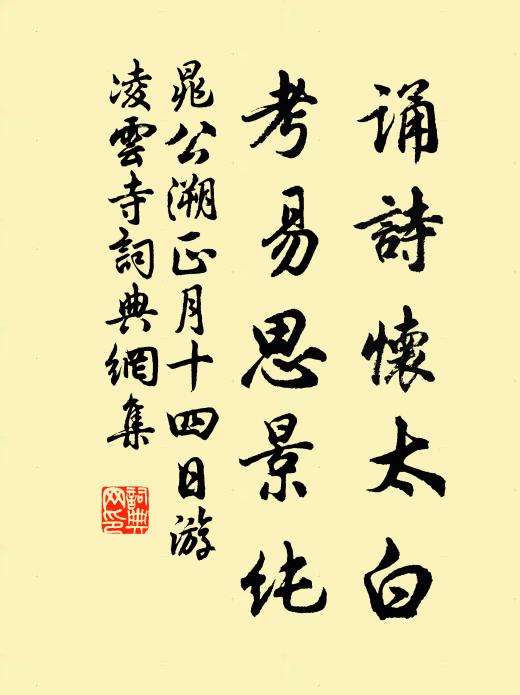 诵詩懷太白
考易思景纯
晁公溯正月十四日游
凌雲寺詞典網集
詞典
网印